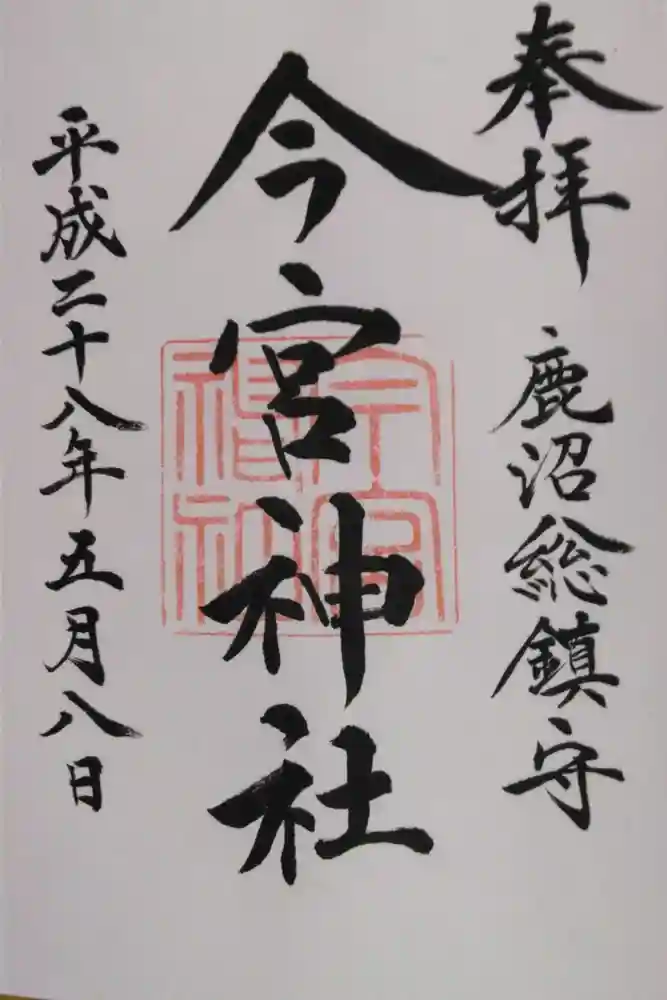 奉拝
鹿沼総鎮守
今宮神社
平成二十八年五月八日
今宮
神社